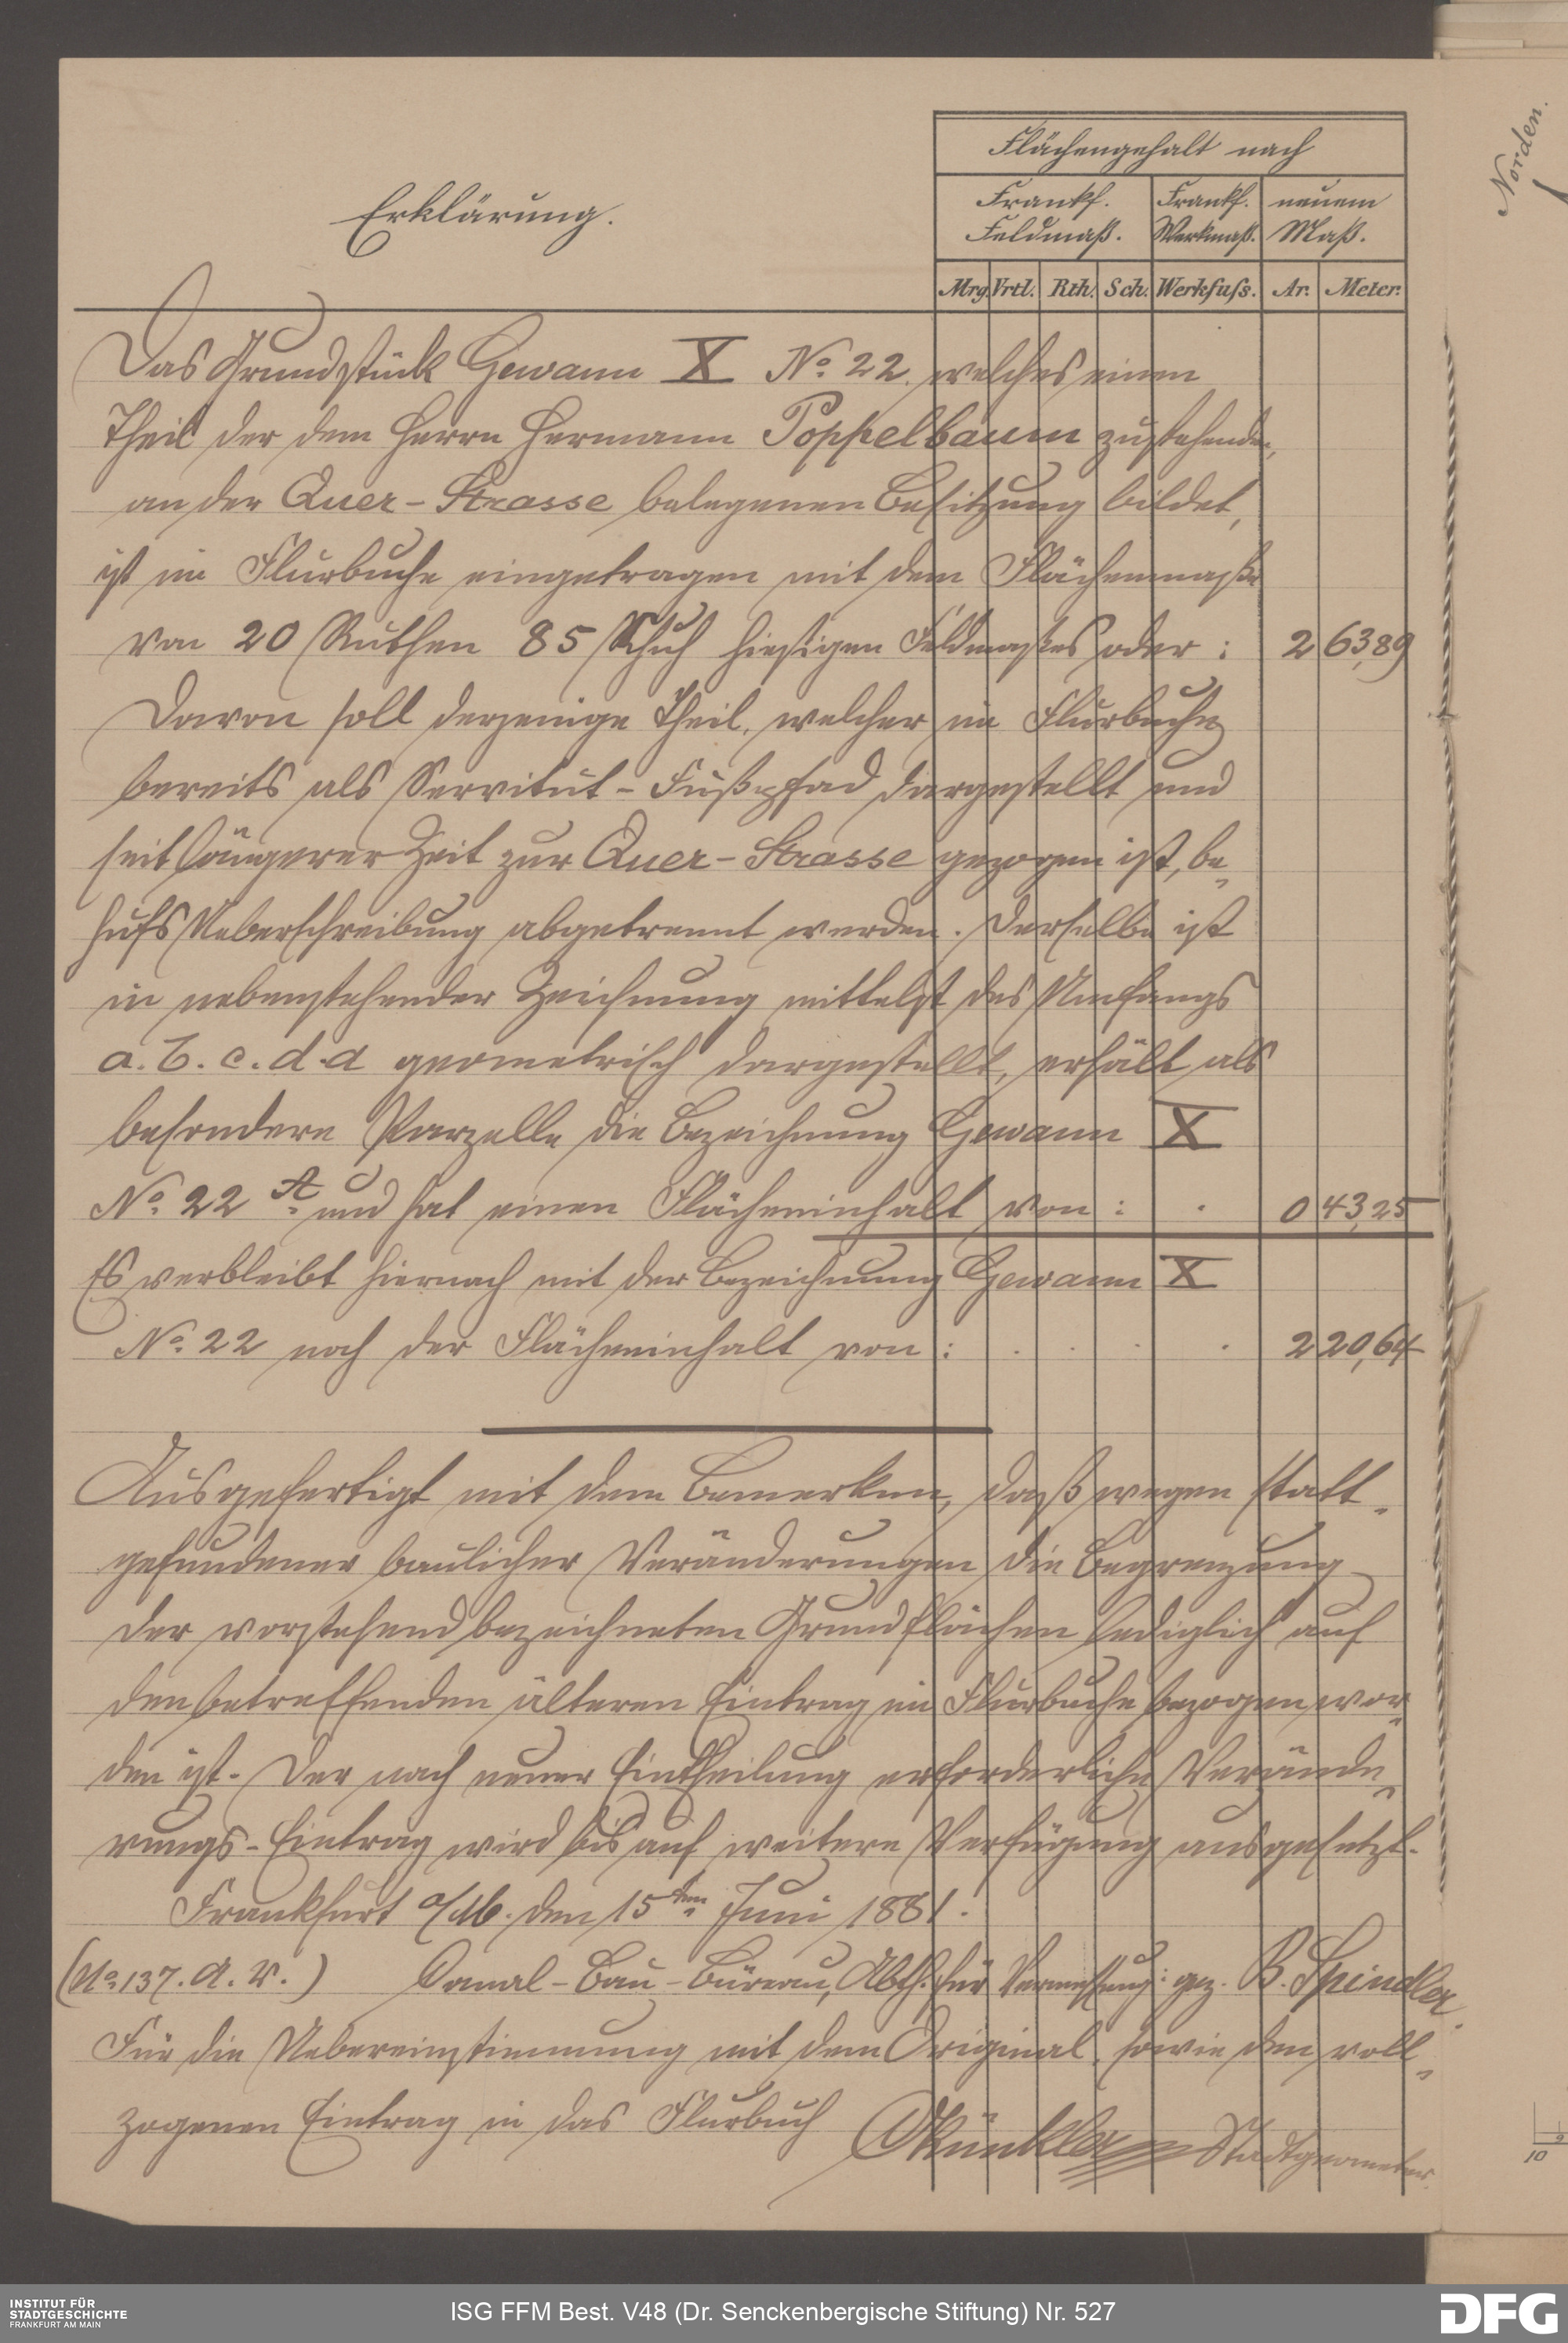 Flächengehalt nach
Frankf. Feldmaß. Frankf. Werkmaß. neuem Maß.
Erklärung.
Mrg. Vrtl. Rth. Sch. Werkfuſs. Ar. Meter.
Norden.
Das Grundstück Gewann X No. 22. welches einen
Theil der dem Herrn Hermann Poppelbaum zustehenden,
an der Quer-Strasse belegenen Besitzung bildet,
ist im Flurbuche eingetragen mit dem Flächenmaße
von 20 Ruthen 85 Schuh hiesigen Feldmaßes oder: 2 63,89
Davon soll derjenige Theil, welcher im Flurbuche
bereits als Servitut-Fußpfad dargestellt und
seit längerer Zeit zur Quer-Strasse gezogen ist, be„
hufs Ueberschreibung abgetrennt werden. Derselbe ist
in nebenstehender Zeichnung mittelst des Umfangs
a. b. c. d. a geometrisch dargestellt, erhält als
besondere Parzelle die Bezeichnung Gewann X
No. 22 A. und hat einen Flächeninhalt von: . 0 43,25
Es verbleibt hiernach mit der Bezeichnung Gewann X
No. 22 noch der Flächeninhalt von: . . . . 2 20,64
Ausgefertigt mit dem Bemerken, daß wegen statt„
gefundener baulicher Veränderungen die Begrenzung
der vorstehend bezeichneten Grundflächen lediglich auf
den betreffenden älteren Eintrag im Flurbuche bezogen wor„
den ist. Der nach neuer Eintheilung erforderliche Verände„
rungs-Eintrag wird bis auf weitere Verfügung ausgesetzt.
Frankfurt a/M. den 15ten Juni 1881.
(No. 137. A. V.) Canal-Bau-Büreau, Abth. für Vermessung: gez. B. Spindler.
Für die Uebereinstimmung mit dem Original, sowie den voll„
zogenen Eintrag in das Flurbuch
Stadtgeometer.
10
INSTITUT FÜR
STADTGESCHICHTE
FRANKFURT AM MAIN
ISG FFM Best. V48 (Dr. Senckenbergische Stiftung) Nr. 527
DFG